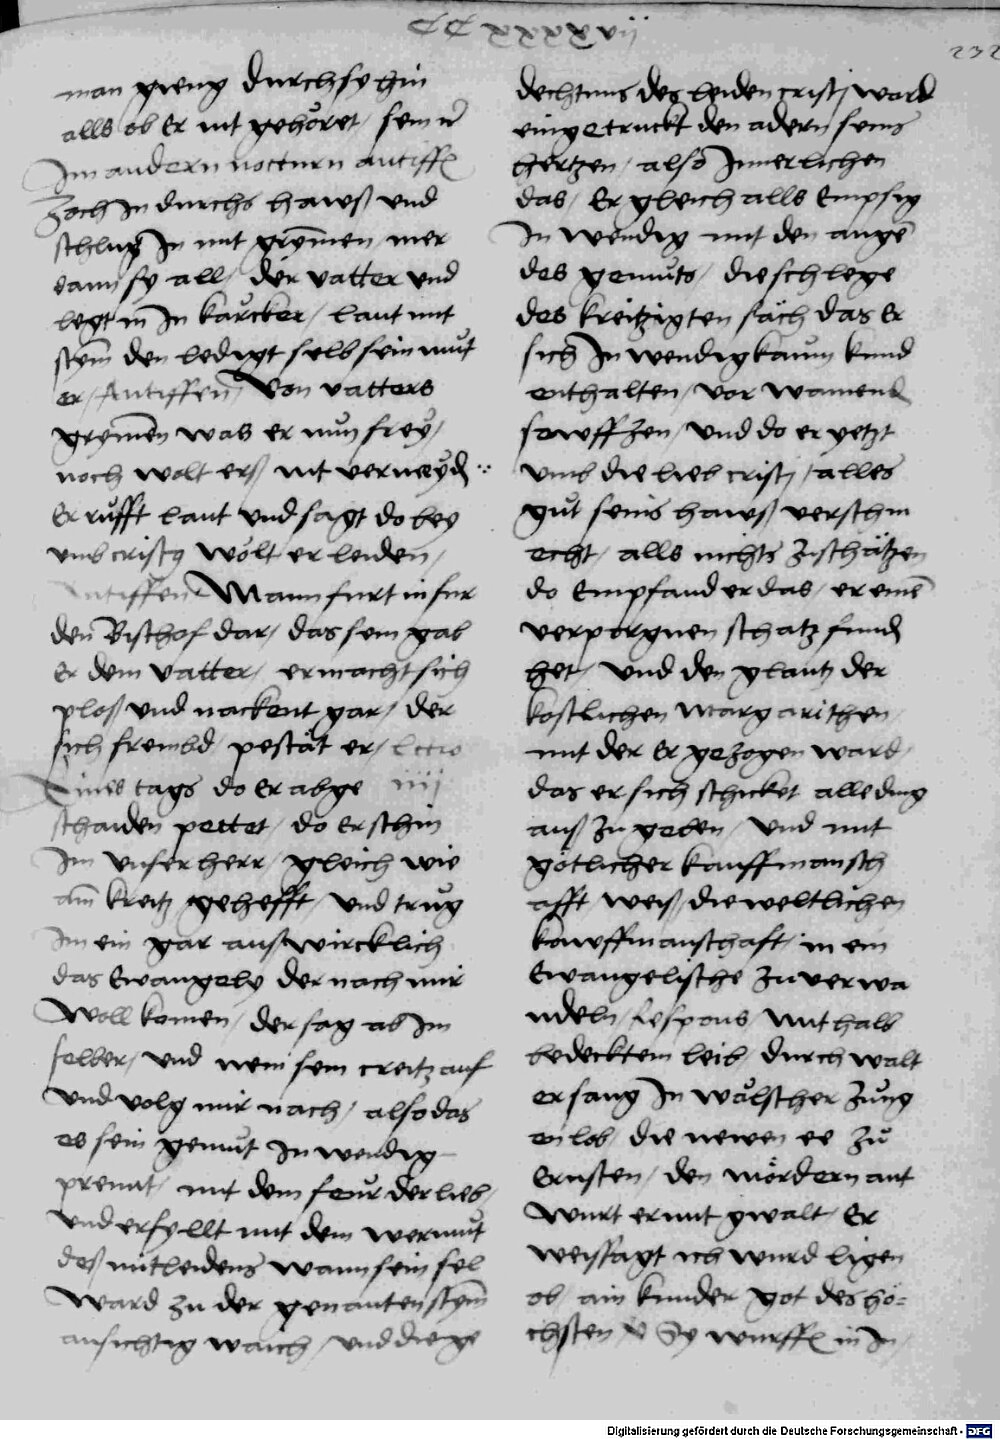 CC xxxxvij
232
man gieng durchsy hin
alls ob Er nit gehöret sein
Im andern nocturn antiff
Zoch In durchs hawß vnd
schlug In mit grymen mer
dann sy all der vatter vnd
legt in In karcker laut mit
stym den ledigt selb sein mut
er Antiffen Von vatters
grymen was er nun frey
noch wolt erß nit vermeyd
Er rufft laut vnd sagt do bey
vmb cristy wolt er leiden
Antiffen Mann furt in fur
den Bischof dar das sein gab
Er dem vatter er macht sich
ploß vnd nackent gar der
sich frembd pestät er lectio
Eines tags do Er abge iiij
schaiden pettet do Erschin
Im vnser herr gleich wie
am kreitz gehefft vnd trug
Im ein gar außwircklich
das Ewangely der nach mir
Woll komen der sag ab Im
selber vnd nem sein creitz auf
vnd volg mir nach also das
es sein gemut Inwendig
prennt mit dem feur der lieb
vnd erfyllt mit dem wermut
deß mitleidens wann sein sel
Ward zu der genanten stym
ansichtig waich vnd die ge
dechtnus des leiden cristj ward
eingetruckt den adern seins
hertzen also Innerlichen
das Er gleich alls Empsig
In wendig mit den auge
des gemuts die schlege
des kreitzigten säch das Er
sich Inwendig kaum kund
enthalten vor wainend
sewffzen vnd do er yetzt
vmb die lieb cristj alles
gut seins hawß verschm
echt alls nichts zuschätzen
do Empfand er das er einē
verporgnen schatz fund
het vnd den glantz der
kostlichen Margarithen
mit der Er gezogen ward
das er sich schicket alle ding
auß zu geben vnd mit
götlicher kauffmansch
afft weiß die weltlichen
kawffmanschaft in ein
Ewangelische zu verwa
ndeln Respons Mit halb
bedecktem leib durch walt
er sang In wälscher Zung
en lob die newen ee zu
Ernsten den mördern ant
wurt er mit gwalt Er
weissagt ich wurd ligen
ob ain kunder got des hö=
chsten V Sy wurffen in In
Digitalisierung gefördert durch die Deutsche Forschungsgemeinschaft - DFG